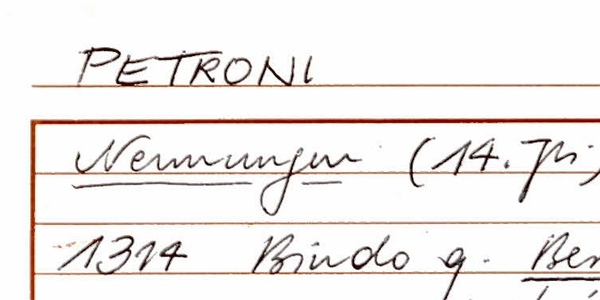 PETRONI
Nennungen (14. Jh)
1314 Bindo q.